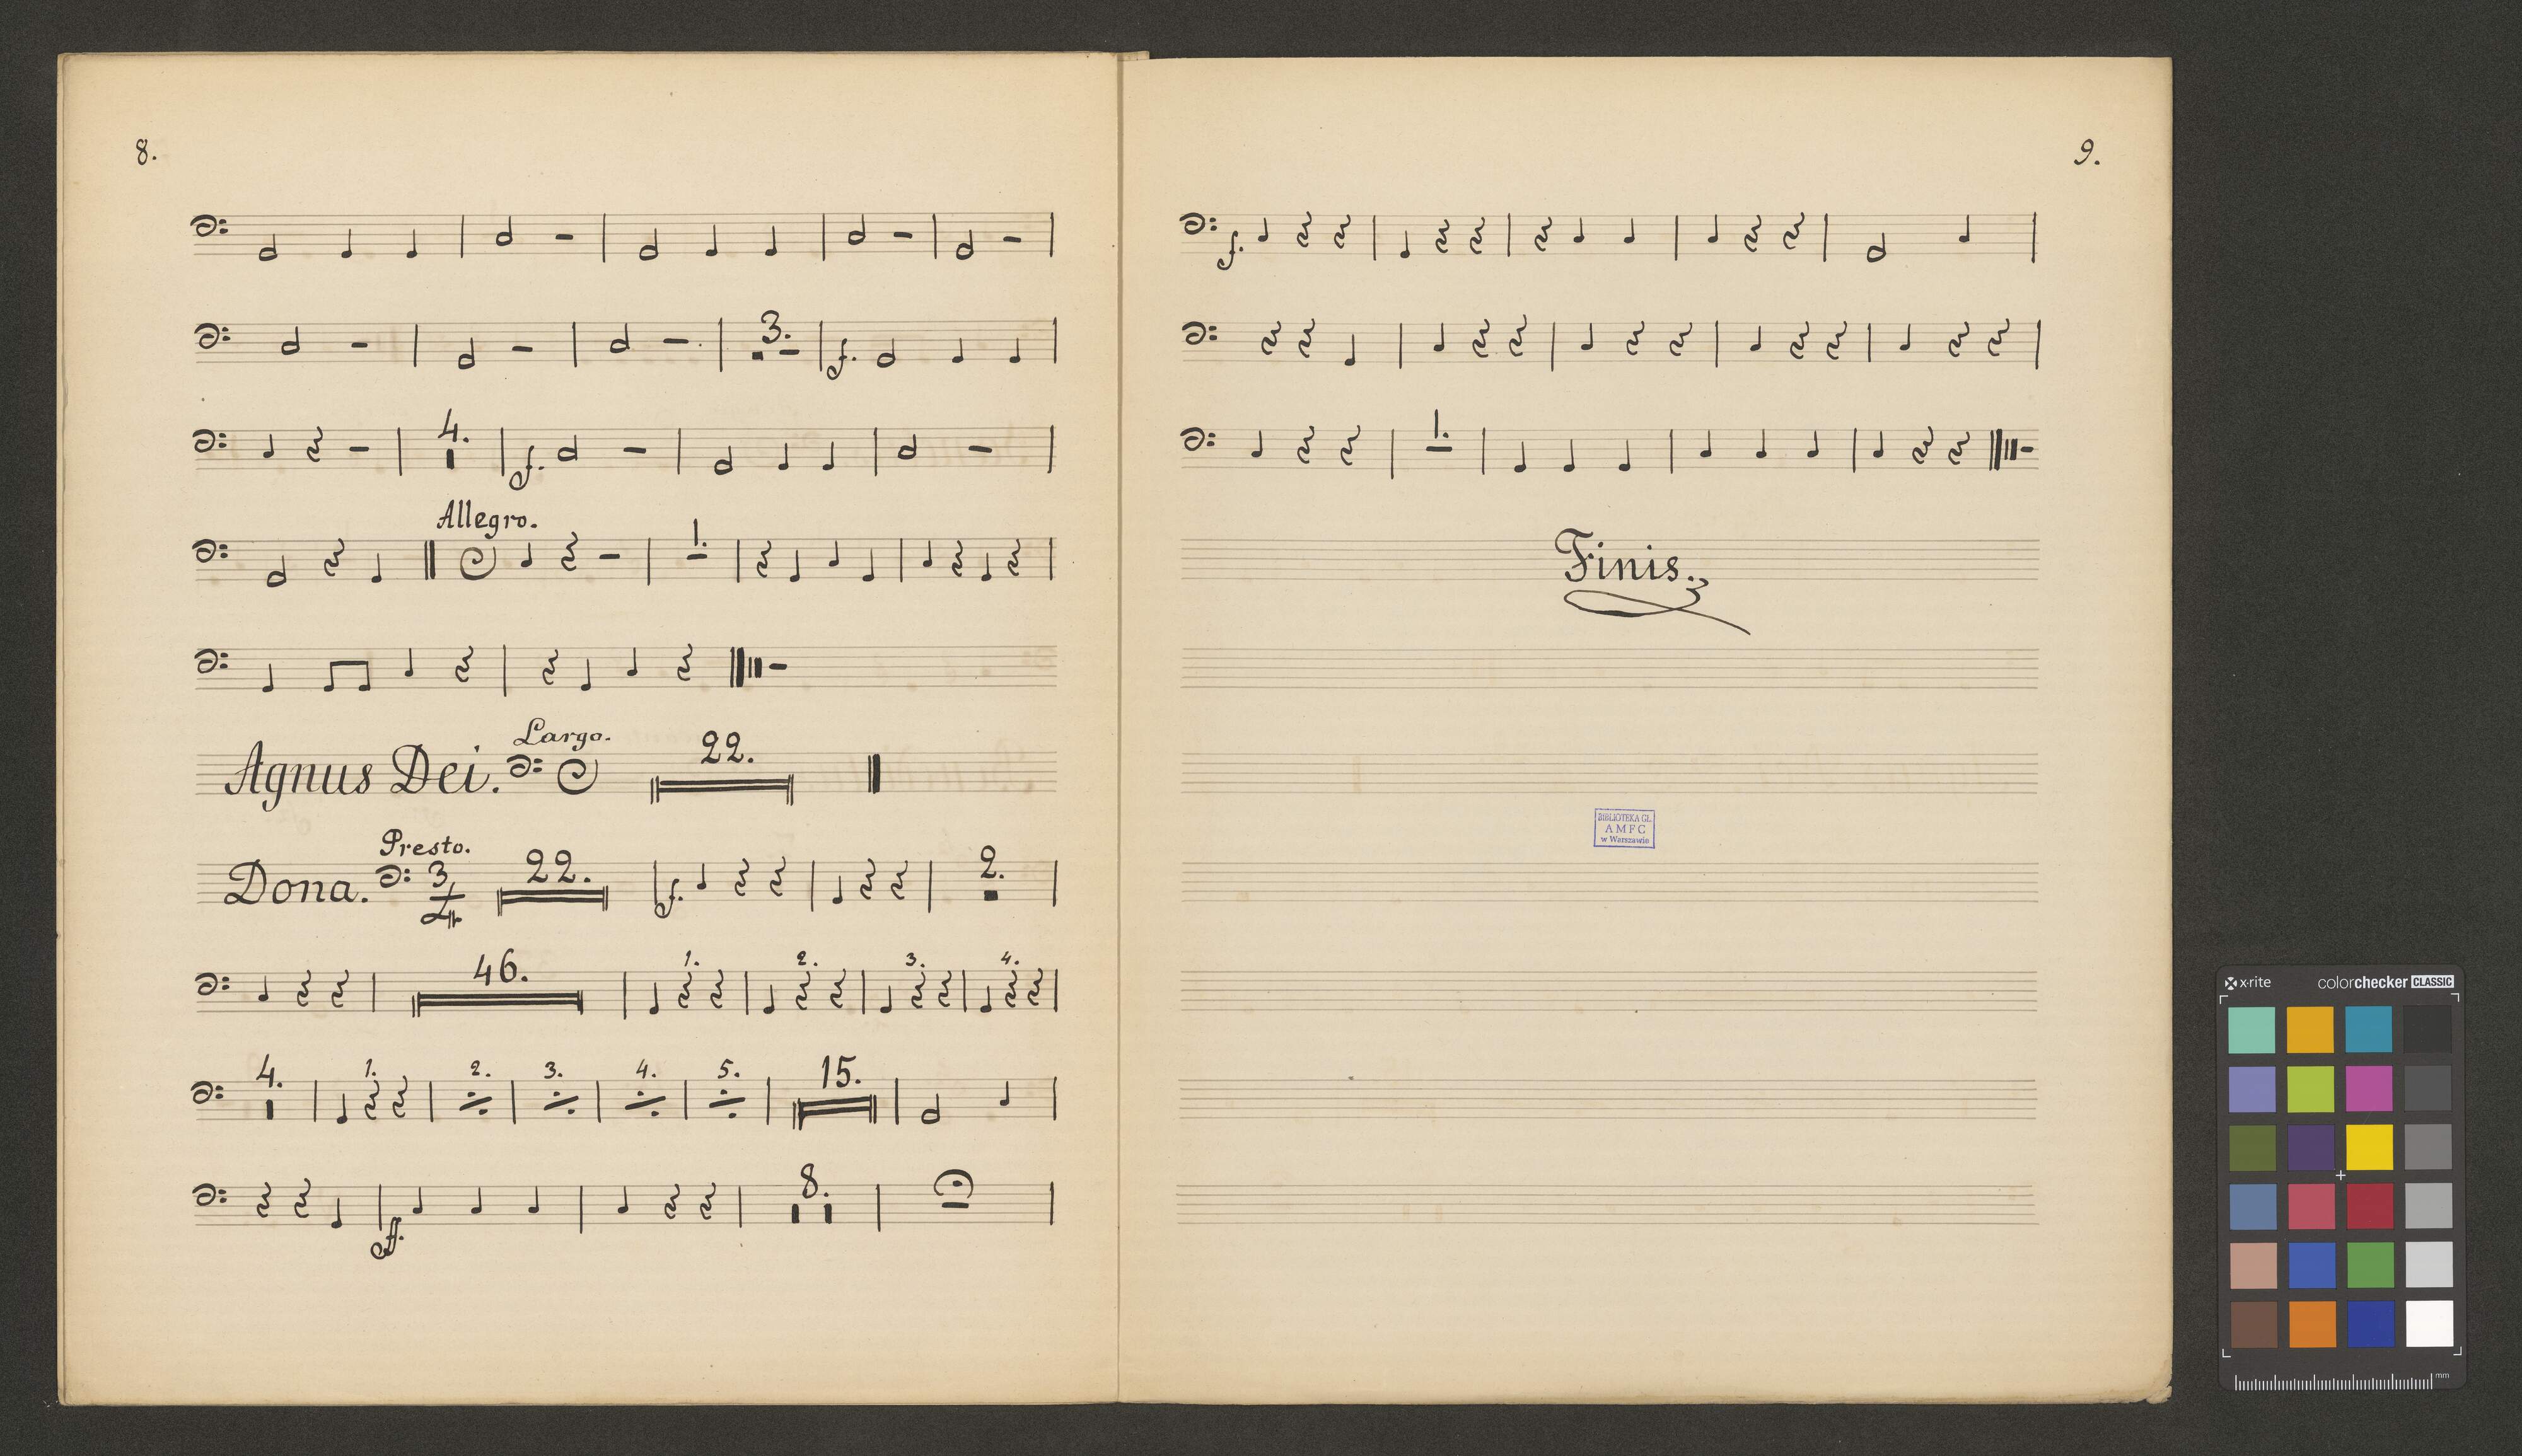 8.
3.
f.
4.
f.
Allegro.
1.
Largo.
Agnus Dei. 22.
Presto.
Dona. 3/4 22. f. 2.
46. 1. 2. 3. 4.
4. 1. 2. 3. 4. 5. 15.
8.
ff.
9.
f.
1.
Finis.
BIBLIOTEKA GŁ.
AMFC
w Warszawie
x-rite colorchecker CLASSIC
mm